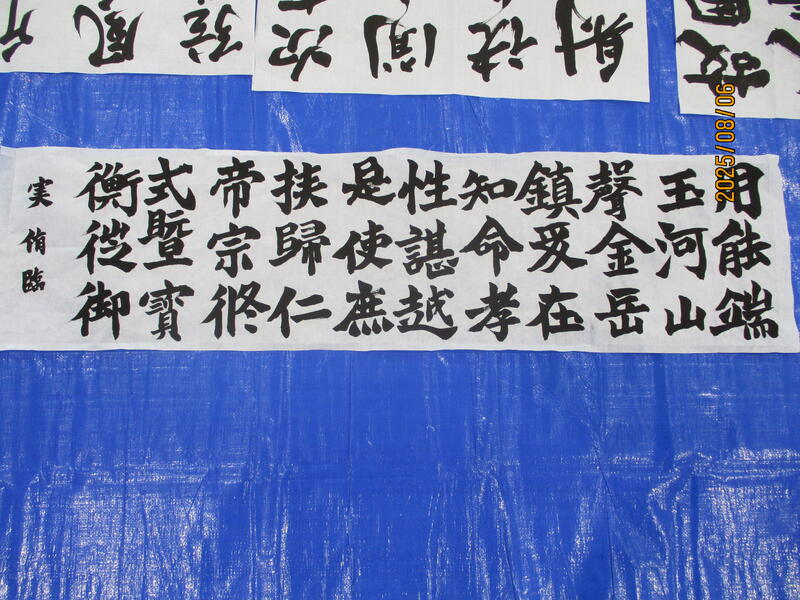 用能端
玉河山
聲金岳
鎮爰在
知命孝
性諶越
是使庶
族歸仁
帝宗攸
式暨寳
衡徙御
実侑臨
2025/08/06